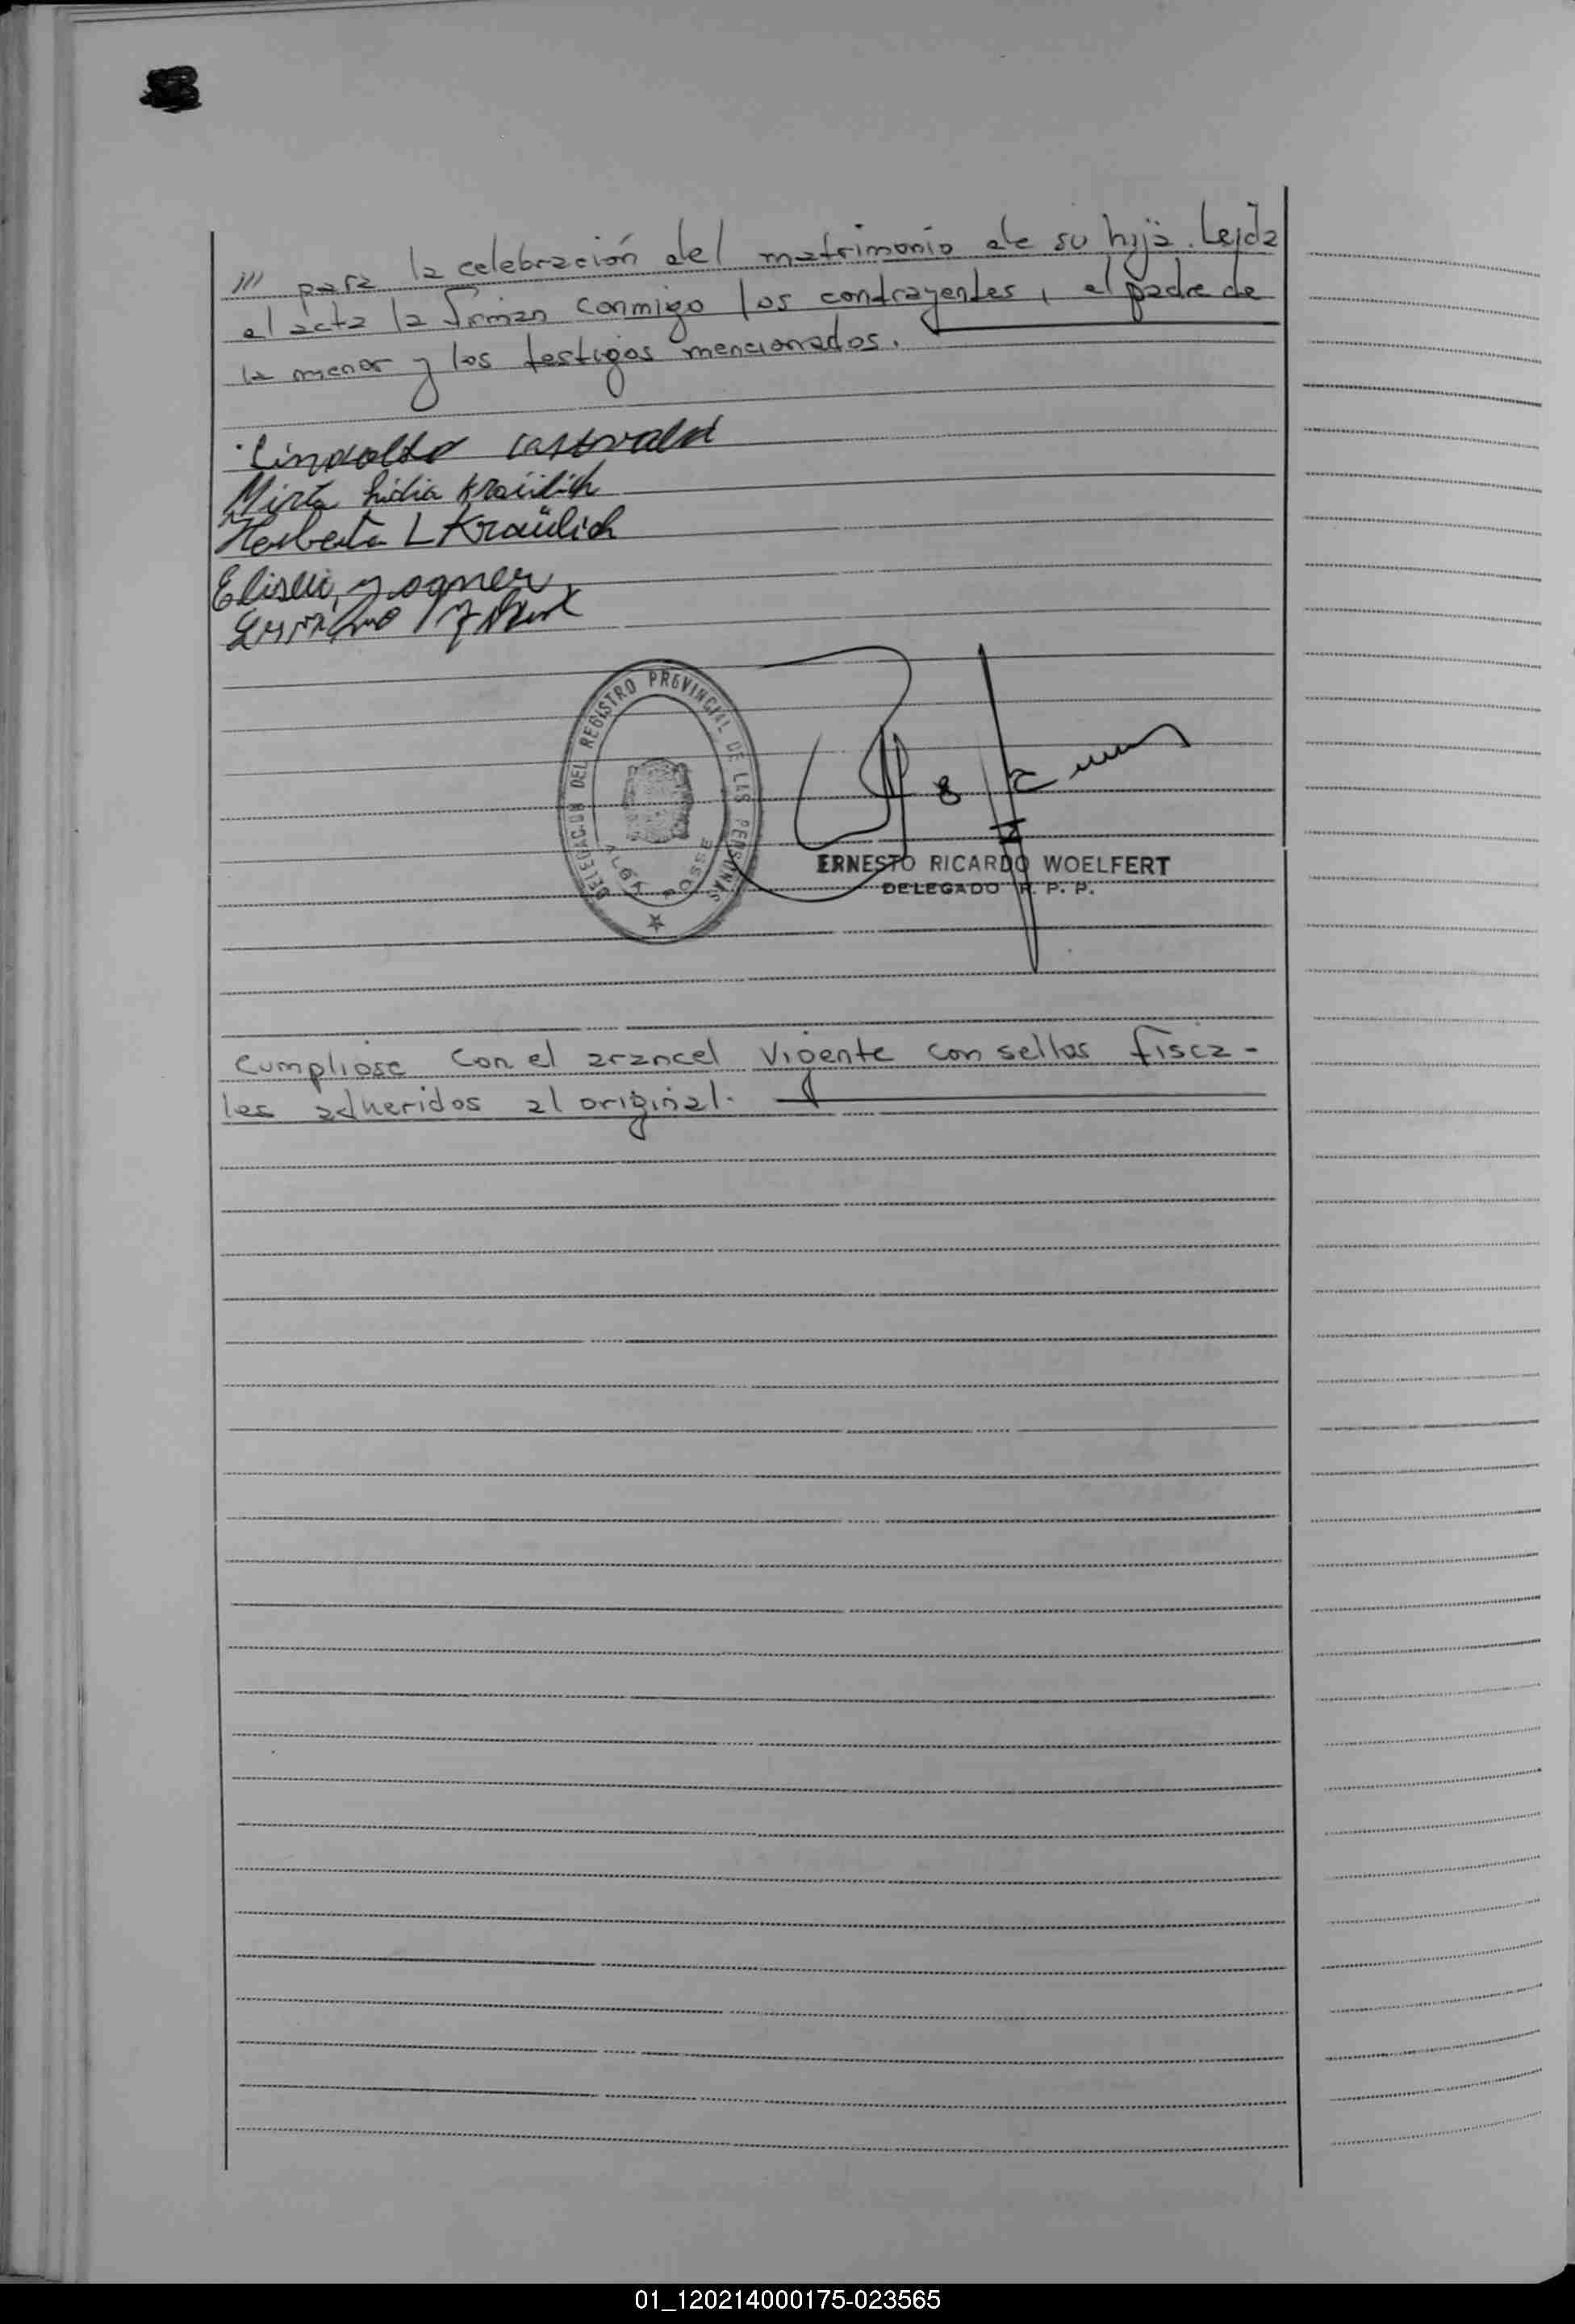 /// para la celebración del matrimonio de su hija. Leída
el acta la firman conmigo los contrayentes, el padre de
la menor y los testigos mencionados.
Mirta Lidia Kraülich
Herberto L Kraülich
DELEGACION DEL REGISTRO PROVINCIAL DE LAS PERSONAS
ALBA POSSE
ERNESTO RICARDO WOELFERT
DELEGADO R. P. P.
Cumpliose con el arancel vigente con sellos fisca-
les adheridos al original.
01_120214000175-023565